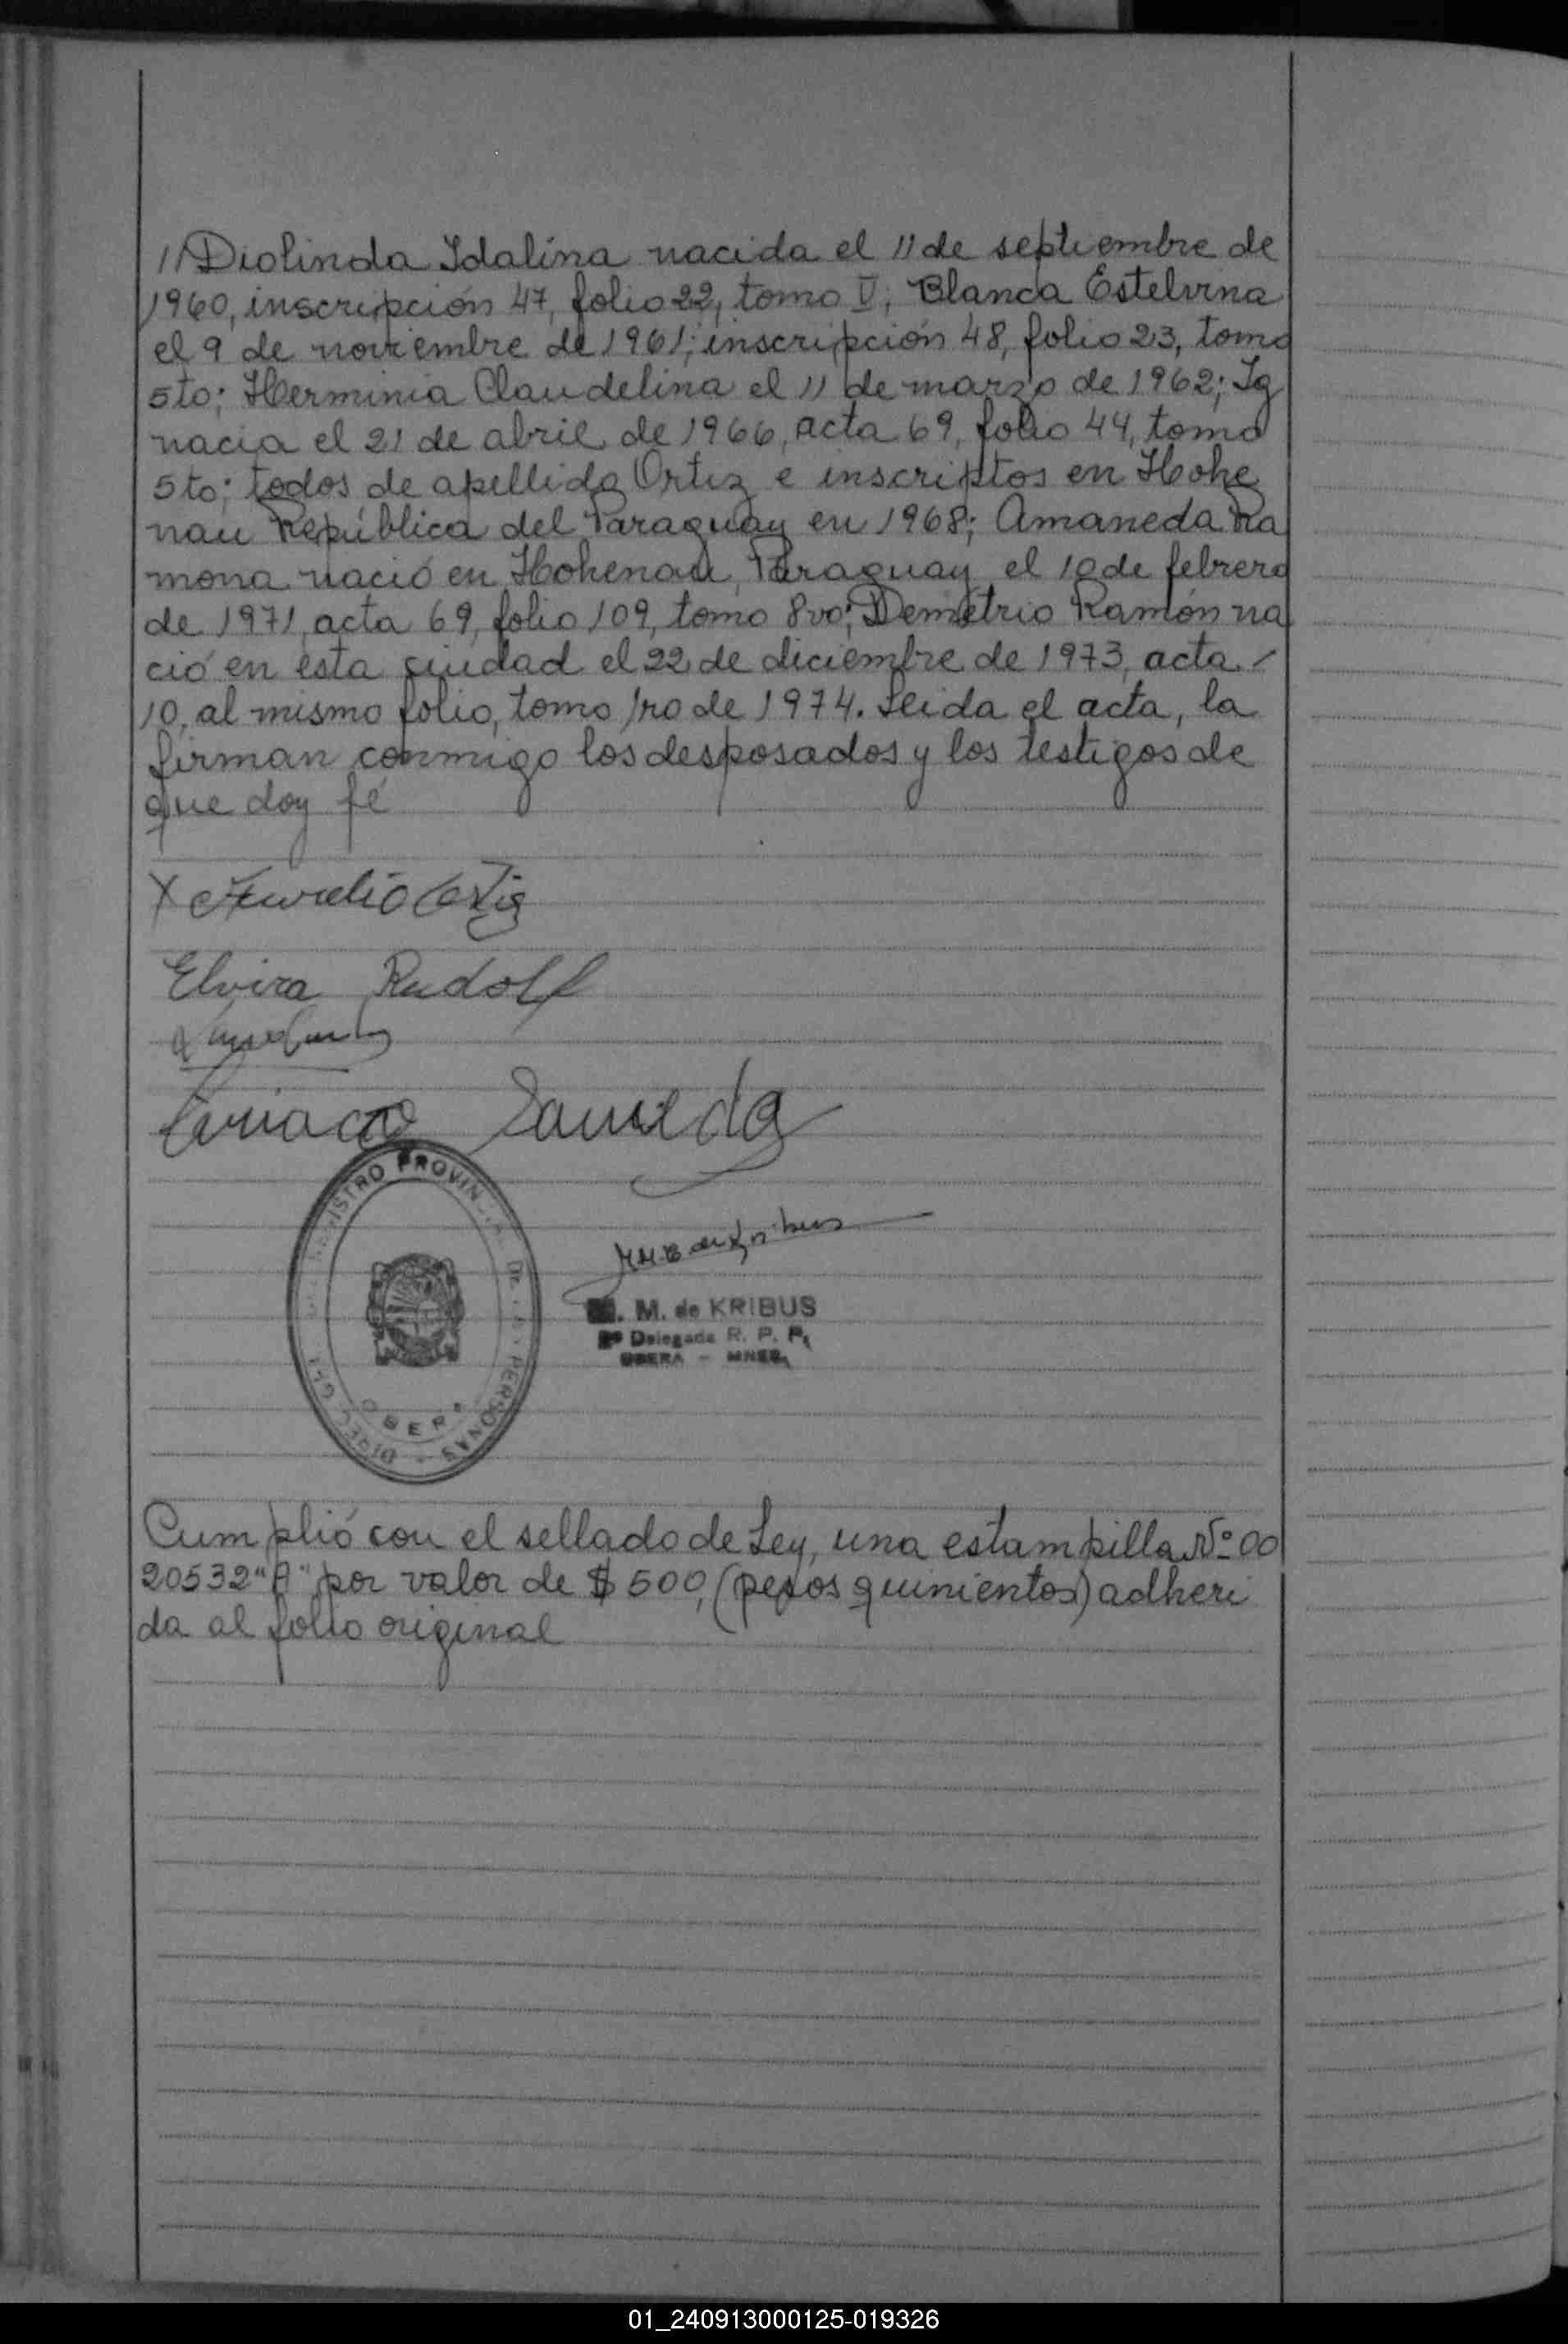 //Diolinda Idalina nacida el 11 de septiembre de
1960, inscripción 47, folio 22, tomo V; Blanca Estelvina
el 9 de noviembre de 1961; inscripción 48, folio 23, tomo
5to; Herminia Claudelina el 11 de marzo de 1962; Ig
nacia el 21 de abril de 1966, acta 69, folio 44, tomo
5to; todos de apellido Ortiz e inscriptos en Hohe
nau República del Paraguay en 1968; Amaneda Ra
mona nació en Hohenau, Paraguay el 10 de febrero
de 1971, acta 69, folio 109, tomo 8vo; Demetrio Ramón na
ció en esta ciudad el 22 de diciembre de 1973, acta /
10, al mismo folio, tomo 1ro de 1974. Leida el acta, la
firman conmigo los desposados y los testigos de
que doy fé
X Aurelio Ortiz
Elvira Rudolf
Ciriaco Saucedo
REGISTRO PROVINCIAL DE LAS PERSONAS - DIREC. GRAL.
OBERA
M. de KRIBUS
Delegada R. P. P.
OBERA - MNES.
Cumplió con el sellado de Ley, una estampilla Nº 00
20532 "A" por valor de $ 500, (pesos quinientos) adheri
da al folio original
01_240913000125-019326